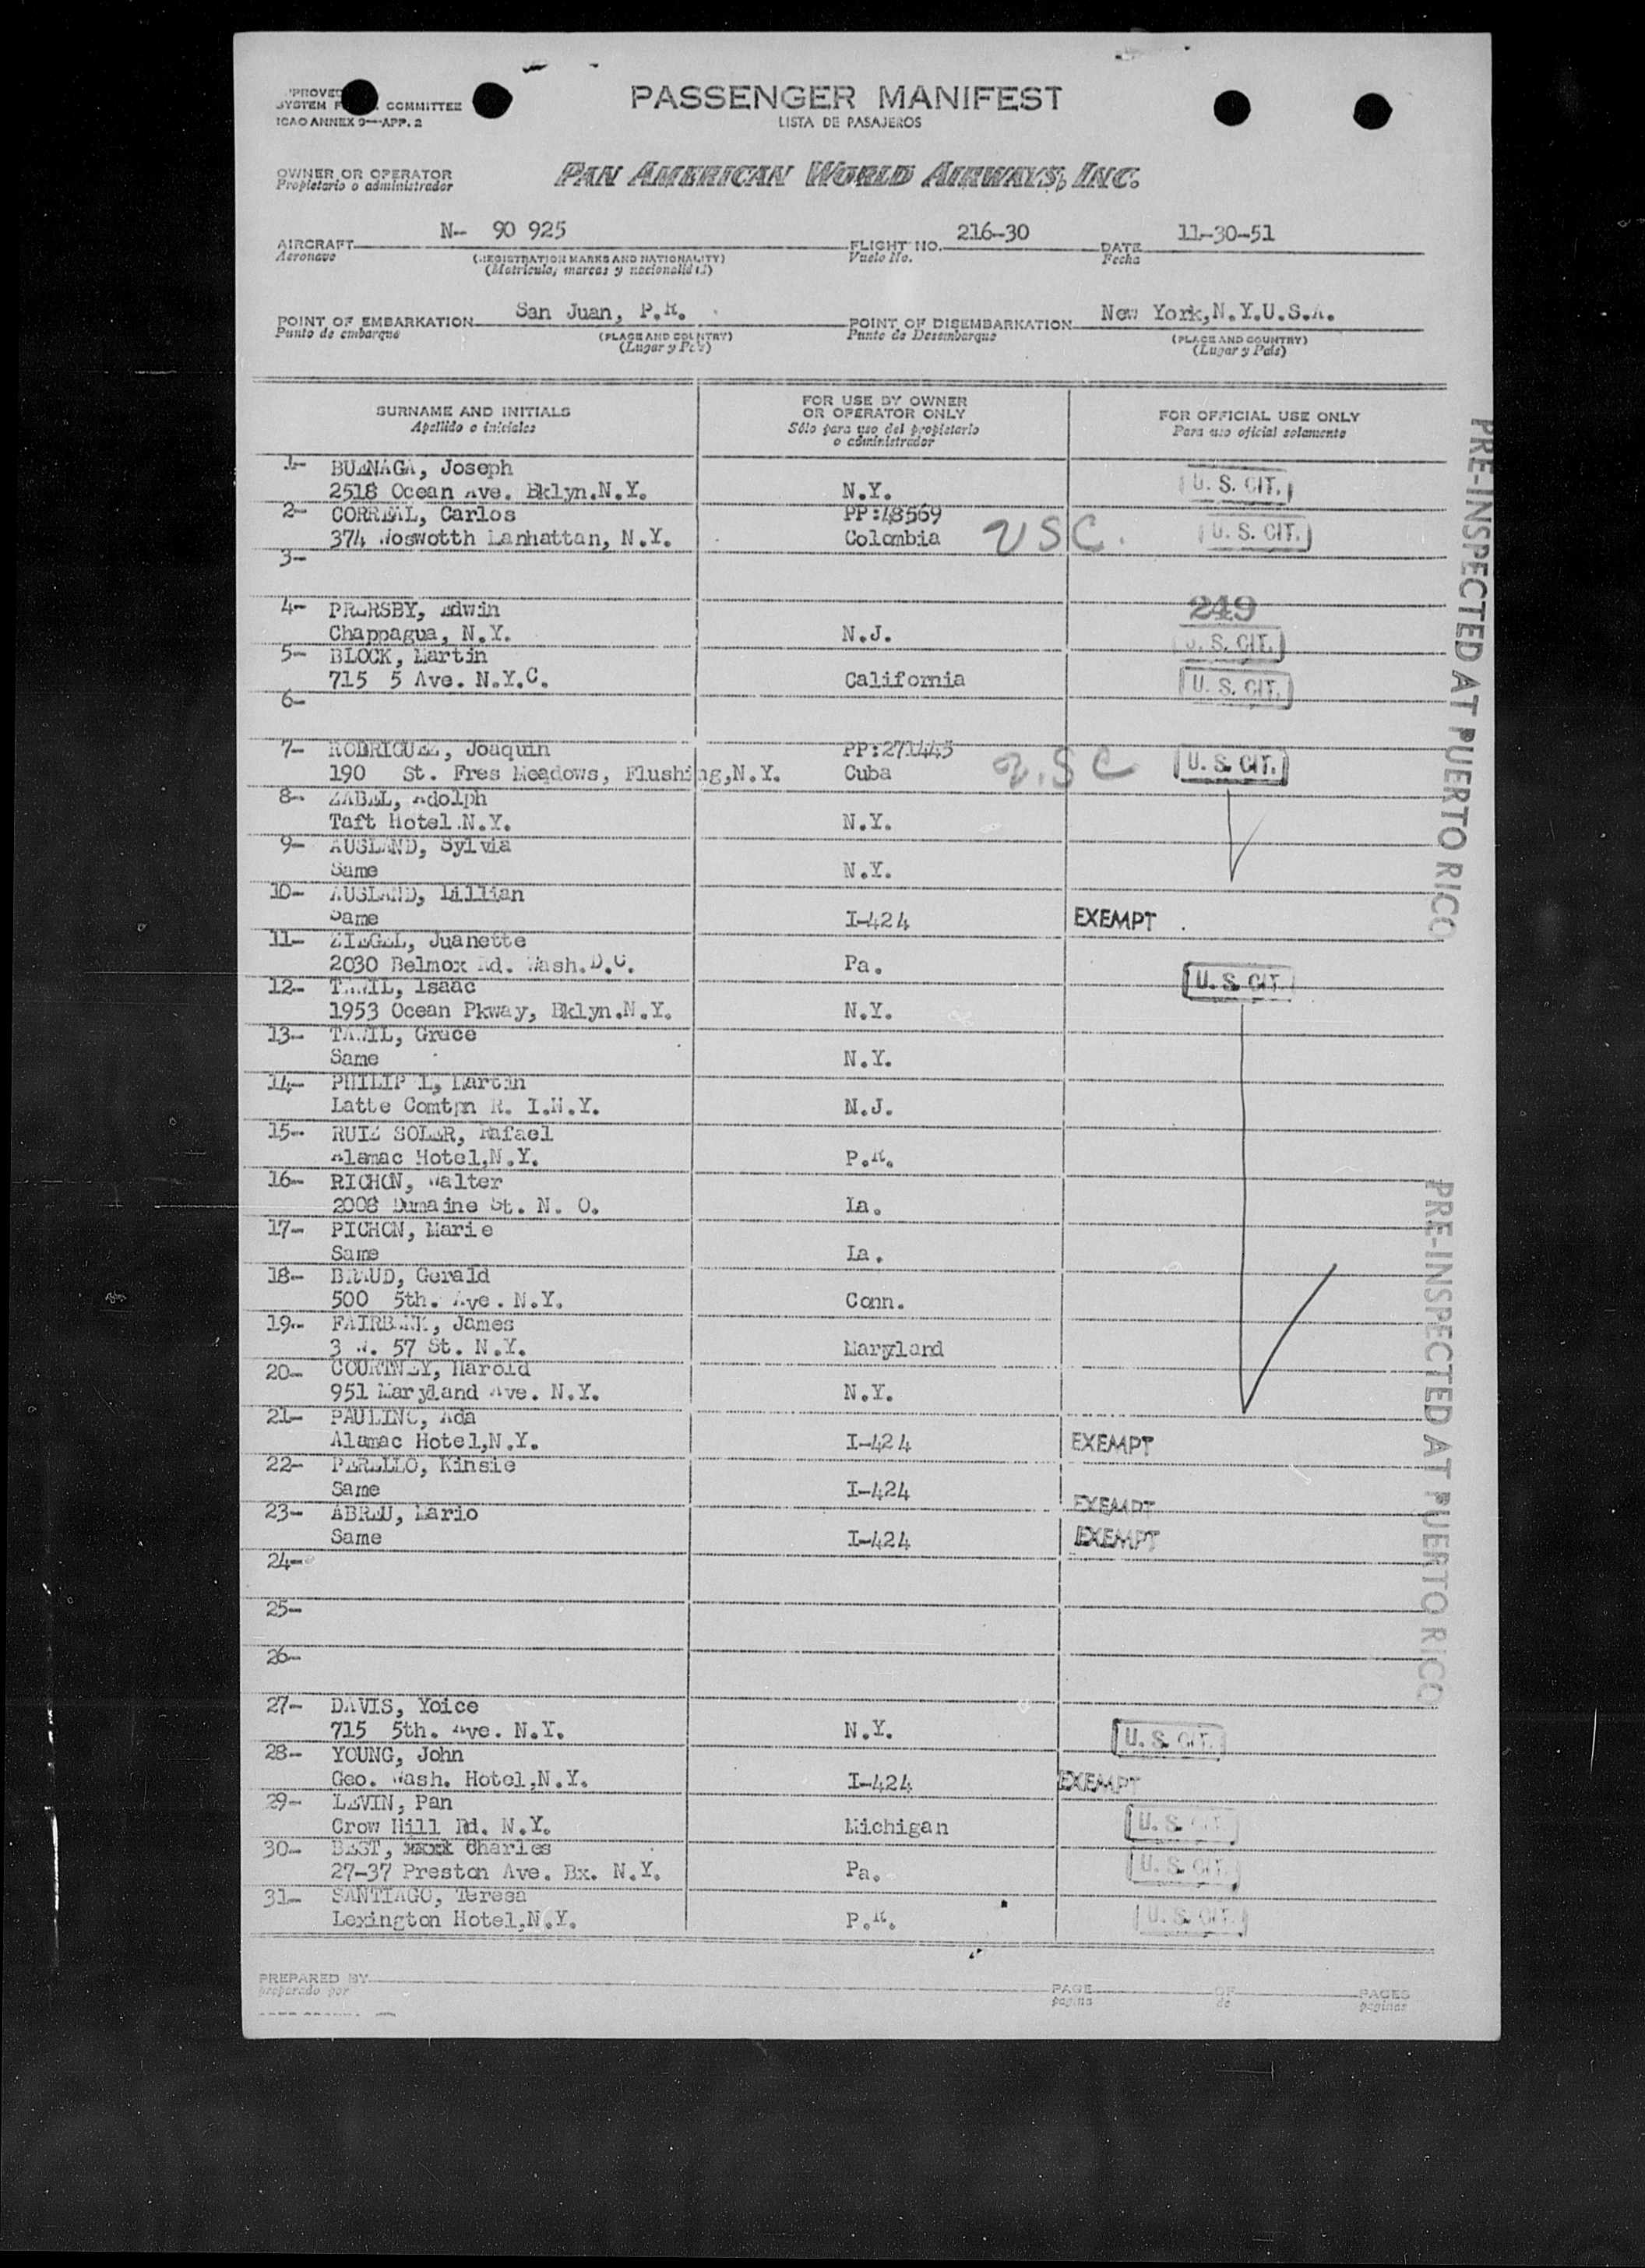 PASSENGER MANIFEST
LISTA DE PASAJEROS
COMMITTEE
ICAO ANNEX 9—APP. 2
OWNER OR OPERATOR
Propietario o administrador
PAN AMERICAN WORLD AIRWAYS, INC.
AIRCRAFT N- 90 925 FLIGHT NO. 216-30 DATE 11-30-51
Aeronave (REGISTRATION MARKS AND NATIONALITY) Vuelo No. Fecha
(Matricula, marcas y nacionalidad)
POINT OF EMBARKATION San Juan, P.R. POINT OF DISEMBARKATION New York,N.Y.U.S.A.
Punto de embarque (PLACE AND COUNTRY) Punto de Desembarque (PLACE AND COUNTRY)
(Lugar y País) (Lugar y País)
SURNAME AND INITIALS
Apellido e iniciales
FOR USE BY OWNER
OR OPERATOR ONLY
Sólo para uso del propietario
o administrador
FOR OFFICIAL USE ONLY
Para uso oficial solamente
1- BUENAGA, Joseph
2518 Ocean Ave. Bklyn.N.Y. N.Y. U. S. CIT.
2- CORREAL, Carlos PP:48569
374 Manhattan, N.Y. Colombia USC. U. S. CIT.
3-
4- Edwin 249
Chappagua, N.Y. N.J. U. S. CIT.
5- BLOCK, Martin
715 5 Ave. N.Y.C. California U. S. CIT.
6-
7- RODRIGUEZ, Joaquin PP:271443
190 St. Fres Meadows, Flushing,N.Y. Cuba U.SC U. S. CIT.
8- ZABEL, Adolph
Taft Hotel.N.Y. N.Y.
9- AUSLAND, Sylvia
Same N.Y.
10- AUSLAND, Lillian
Same I-424 EXEMPT
11- ZIEGEL, Juanette
2030 Belmox Rd. Wash.D.C. Pa. U. S. CIT.
12- TAWIL, Isaac
1953 Ocean Pkway, Bklyn.N.Y. N.Y.
13- TAWIL, Grace
Same N.Y.
14- Martin
Latte Comtpn R. I.N.Y. N.J.
15- RUIZ SOLER, Rafael
Alamac Hotel,N.Y. P.R.
16- RICHON, Walter
2008 Dumaine St. N. O. La.
17- PICHON, Marie
Same La.
18- BRAUD, Gerald
500 5th. Ave. N.Y. Conn.
19- FAIRBANK, James
3 W. 57 St. N.Y. Maryland
20- COURTNEY, Harold
951 Maryland Ave. N.Y. N.Y.
21- PAULINO, Ada
Alamac Hotel,N.Y. I-424 EXEMPT
22- PERELLO, Kinsie
Same I-424 EXEMPT
23- ABREU, Mario
Same I-424 EXEMPT
24-
25-
26-
27- DAVIS, Yoice
715 5th. Ave. N.Y. N.Y. U. S. CIT.
28- YOUNG, John
Geo. Wash. Hotel,N.Y. I-424 EXEMPT
29- LEVIN, Pan
Crow Hill Rd. N.Y. Michigan U. S. CIT.
30- BEST, Charles
27-37 Preston Ave. Bx. N.Y. Pa. U. S. CIT.
31- SANTIAGO, Teresa
Lexington Hotel,N.Y. P.R. U. S. CIT.
PRE-INSPECTED AT PUERTO RICO
PRE-INSPECTED AT PUERTO RICO
PREPARED BY PAGE OF PAGES
preparado por pagina de paginas